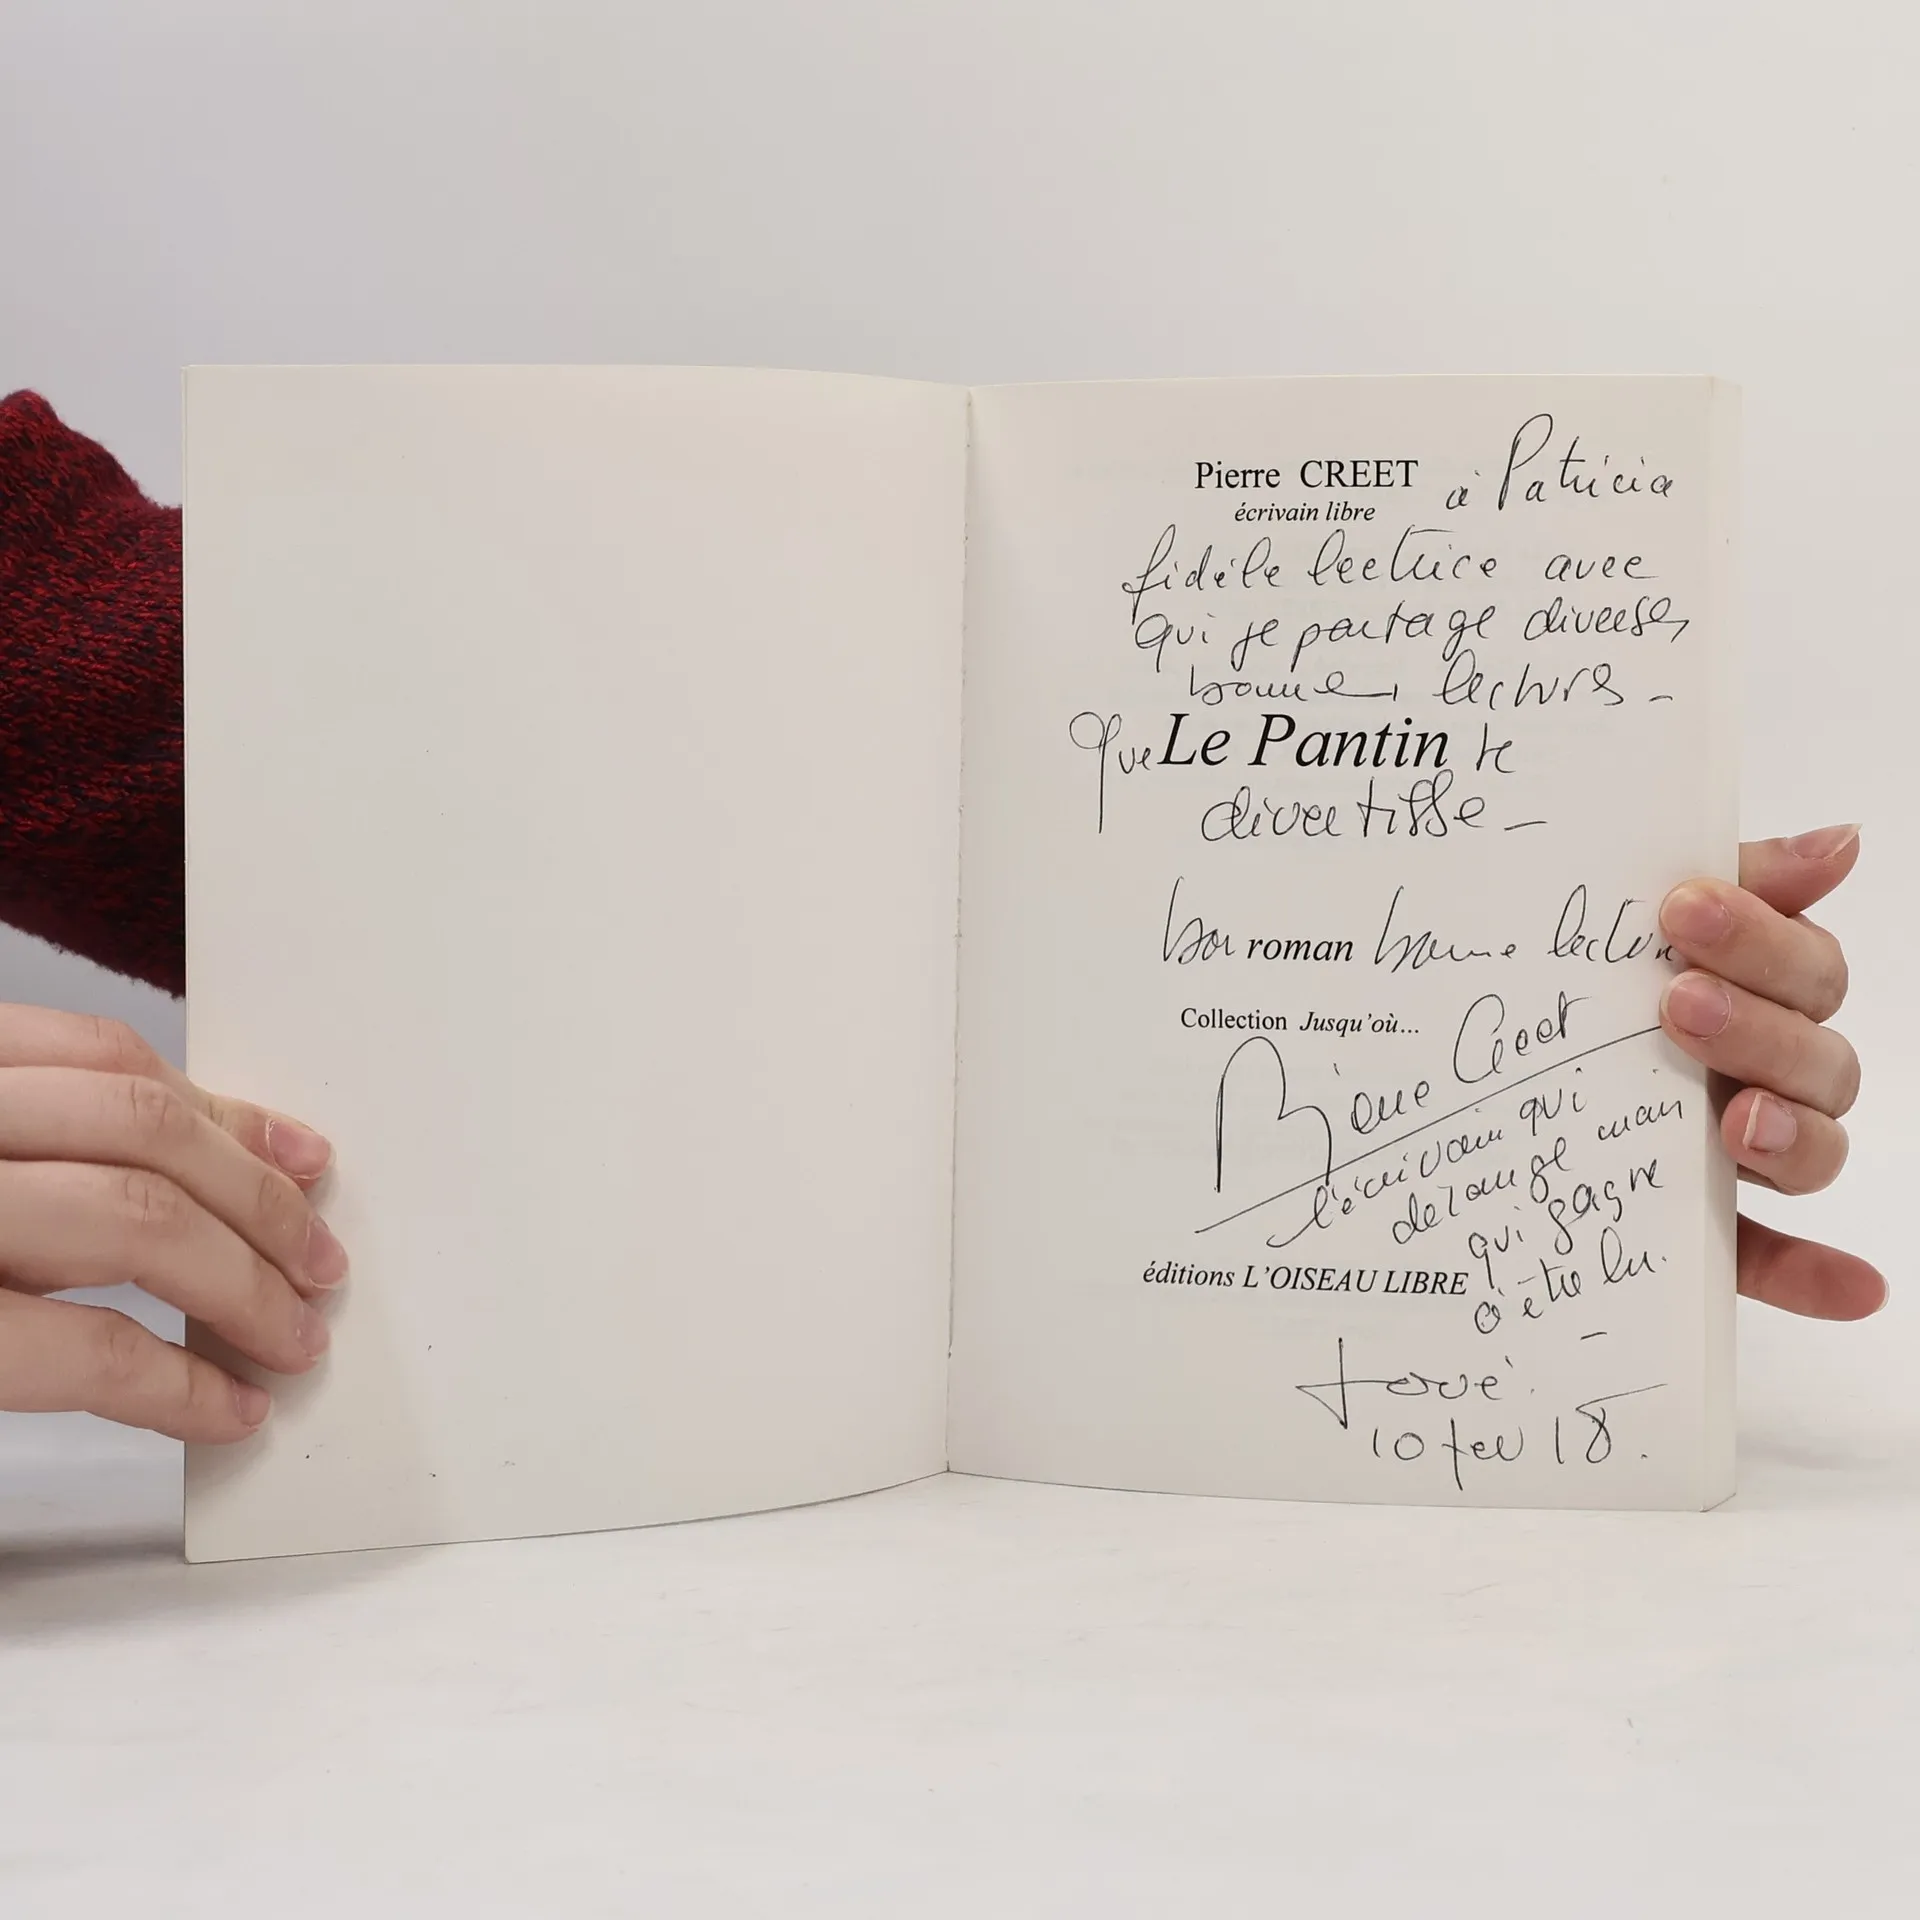 Pierre CREET à Patricia
écrivain libre
fidèle lectrice avec
qui je partage diverses
bonnes lectures -
Que Le Pantin te
divertisse -
bon roman bonne lectur
Collection Jusqu'où...
Pierre Creet
l'écrivain qui
dérange mais
qui gagne
éditions L'OISEAU LIBRE
à être lu.
10 fev 18.